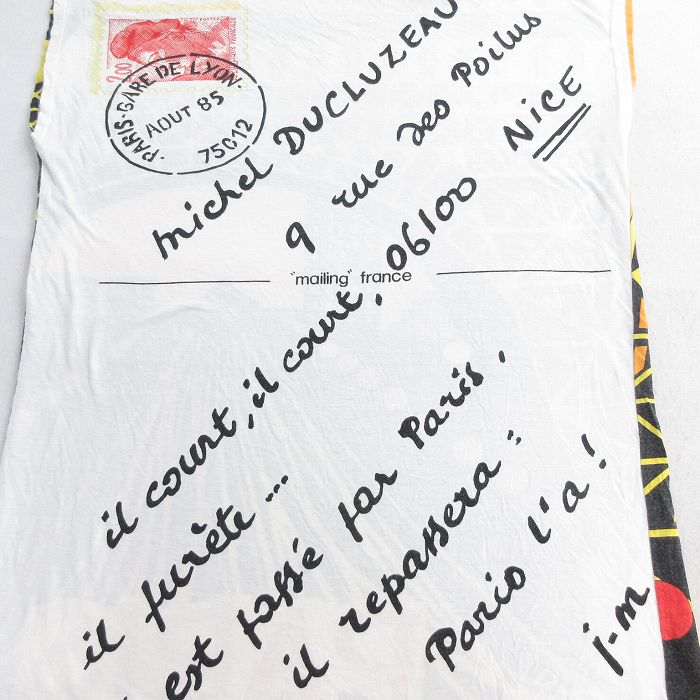 POSTES
2,00
PARIS-GARE DE LYON
AOUT 85
75012
michel DUCLUZEAU
9 rue des Poilus
06100 NICE
"mailing" france
il court, il court,
il furète...
est passé par Paris.
il repassera :
Paris l'a !
j-m